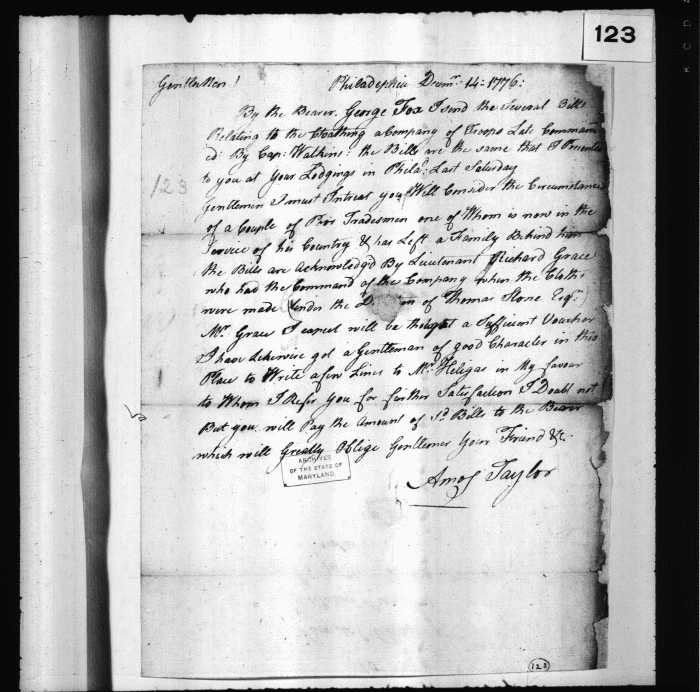 123
Gentlemen!
Philadephia Decmr. 14: 1776:
By the Bearer, George Fox I send the Several Bills
Relating to the Cloathing a Company of Troops Late Command
ed: By Cap: Watkins: the Bills are the same that I Presented
to you at Your Lodgings in Philad: Last Saturday
123
Gentlemen I must Intreat you Will Consider the Circumstances
of a Couple of Poor Tradesmen one of Whom is now in the
Service of his Country & has Left a Family Behind him
the Bills are Acknowledg'd By Lieutenant Richard Grace
who had the Command of the Company when the Cloths
were made (under the D on of Thomas Stone Esqr.)
Mr. Grace I expect will be thought a Sufficient Vouchor
I have Likewise got a Gentleman of good Character in this
Place to Write a few Lines to Mr. in My favour
to Whom I Refer you for further Satisfaction I Doubt not
But you will Pay the Amount of Sd. Bills to the Bearer
which will Greatly Oblige Gentlemen Your Friend &c.
Amos Taylor
ARCHIVES
OF THE STATE OF
MARYLAND
123